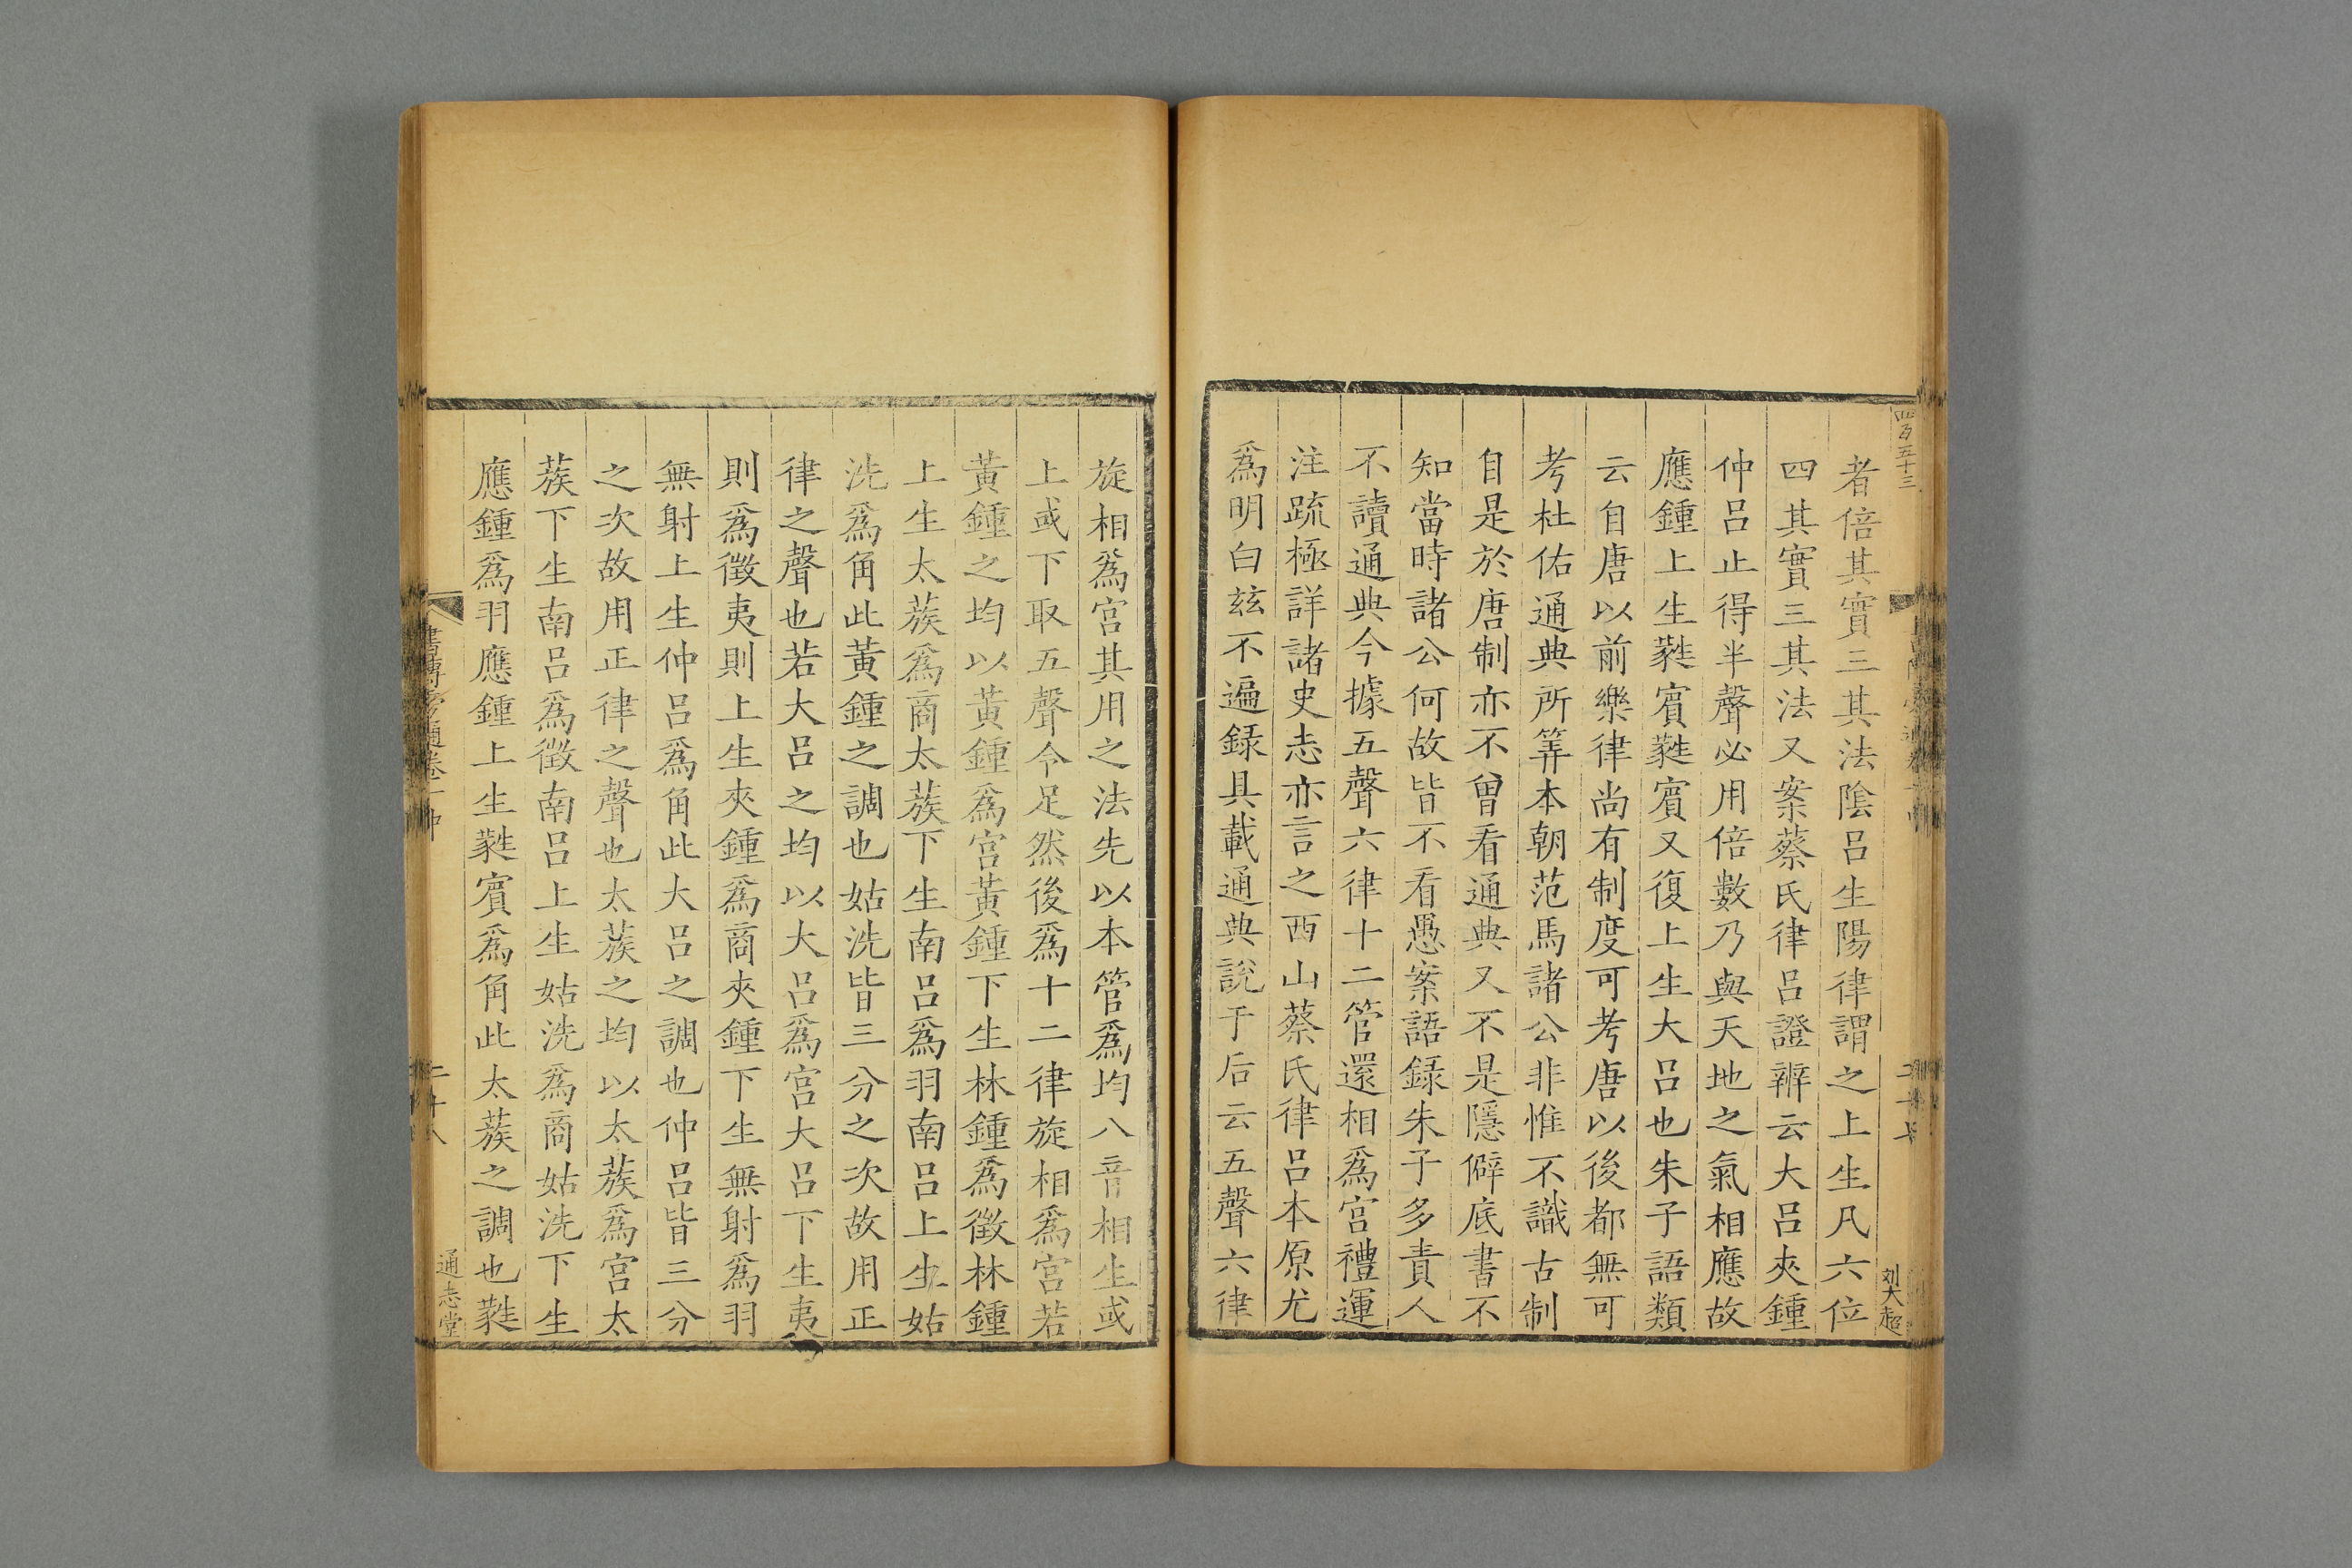 四百五十三
二十七
刘大超
者倍其實三其法陰呂生陽律謂之上生凡六位
四其實三其法又案蔡氏律呂證辨云大呂夾鍾
仲呂止得半聲必用倍數乃與天地之氣相應故
應鍾上生蕤賓蕤賓又復上生大呂也朱子語類
云自唐以前樂律尚有制度可考唐以後都無可
考杜佑通典所筭本朝范馬諸公非惟不識古制
自是於唐制亦不曾看通典又不是隱僻底書不
知當時諸公何故皆不看愚案語錄朱子多責人
不讀通典今據五聲六律十二管還相爲宮禮運
注疏極詳諸史志亦言之西山蔡氏律呂本原尤
爲明白玆不遍錄具載通典說于后云五聲六律
旋相爲宮其用之法先以本管爲均八音相生或
上或下取五聲令足然後爲十二律旋相爲宮若
黃鍾之均以黃鍾爲宮黃鍾下生林鍾爲徵林鍾
上生太蔟爲商太蔟下生南呂爲羽南呂上生姑
洗爲角此黃鍾之調也姑洗皆三分之次故用正
律之聲也若大呂之均以大呂爲宮大呂下生夷
則爲徵夷則上生夾鍾爲商夾鍾下生無射爲羽
無射上生仲呂爲角此大呂之調也仲呂皆三分
之次故用正律之聲也太蔟之均以太蔟爲宮太
蔟下生南呂爲徵南呂上生姑洗爲商姑洗下生
應鍾爲羽應鍾上生蕤賓爲角此太蔟之調也蕤
書傳旁通卷一中
二十八
通志堂